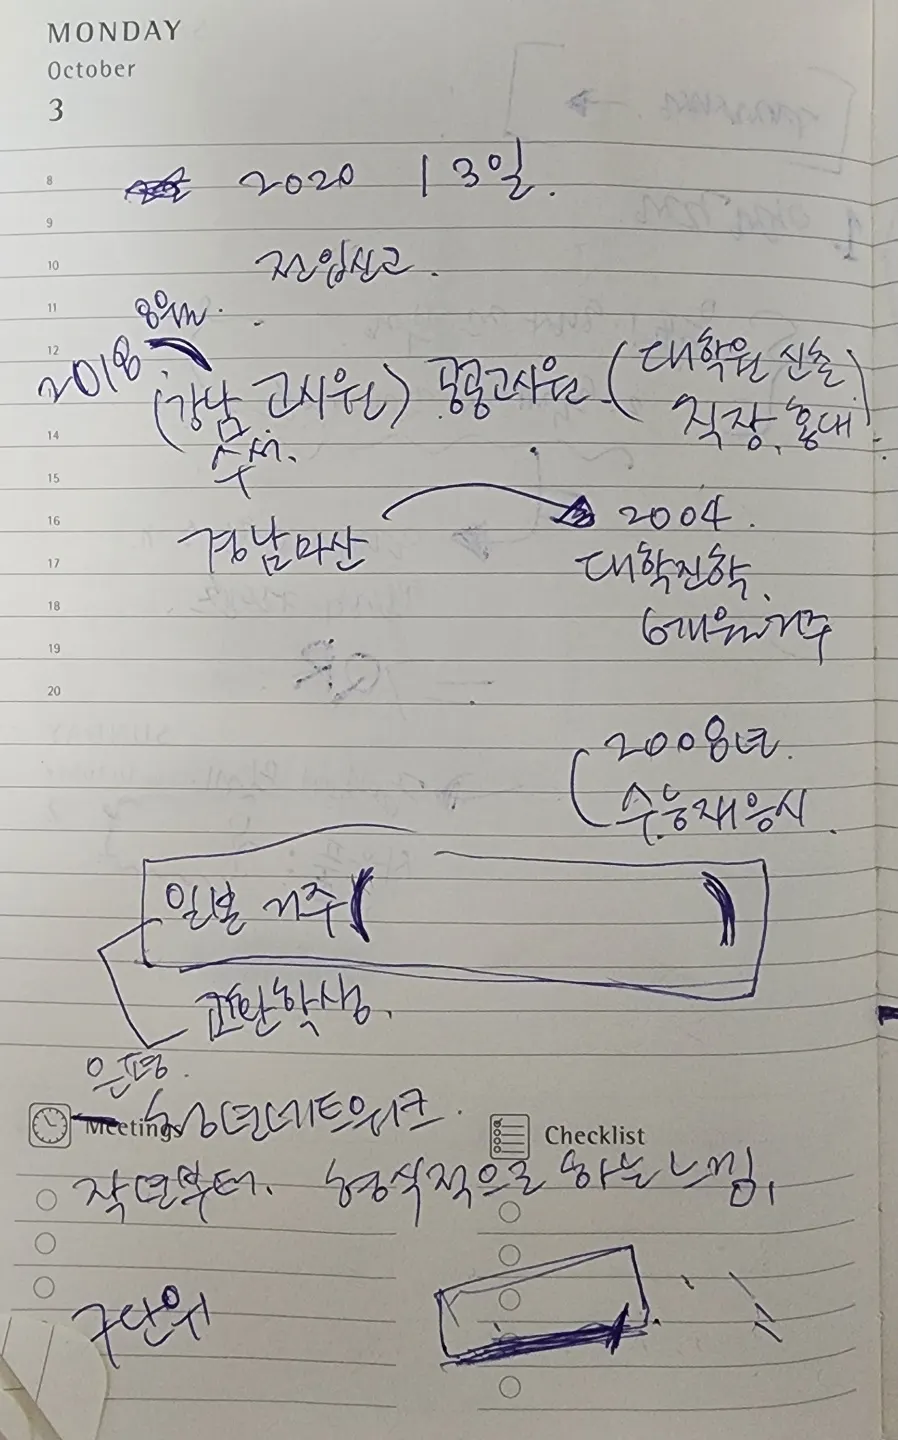 MONDAY
October
3
8
2020 13일.
9
10
전입신고.
11
8월.
12
2018
(강남 고시원) 공공고시원 (대학원 신촌
직장, 홍대)
14
15
16
경남마산
2004.
17
대학진학,
18
6개월거주
19
20
2008년.
수능재응시.
일본 거주 ( )
교환학생.
은평.
Meetings
청년네트워크.
Checklist
작년부터. 형식적으로 하는느낌,
구단위